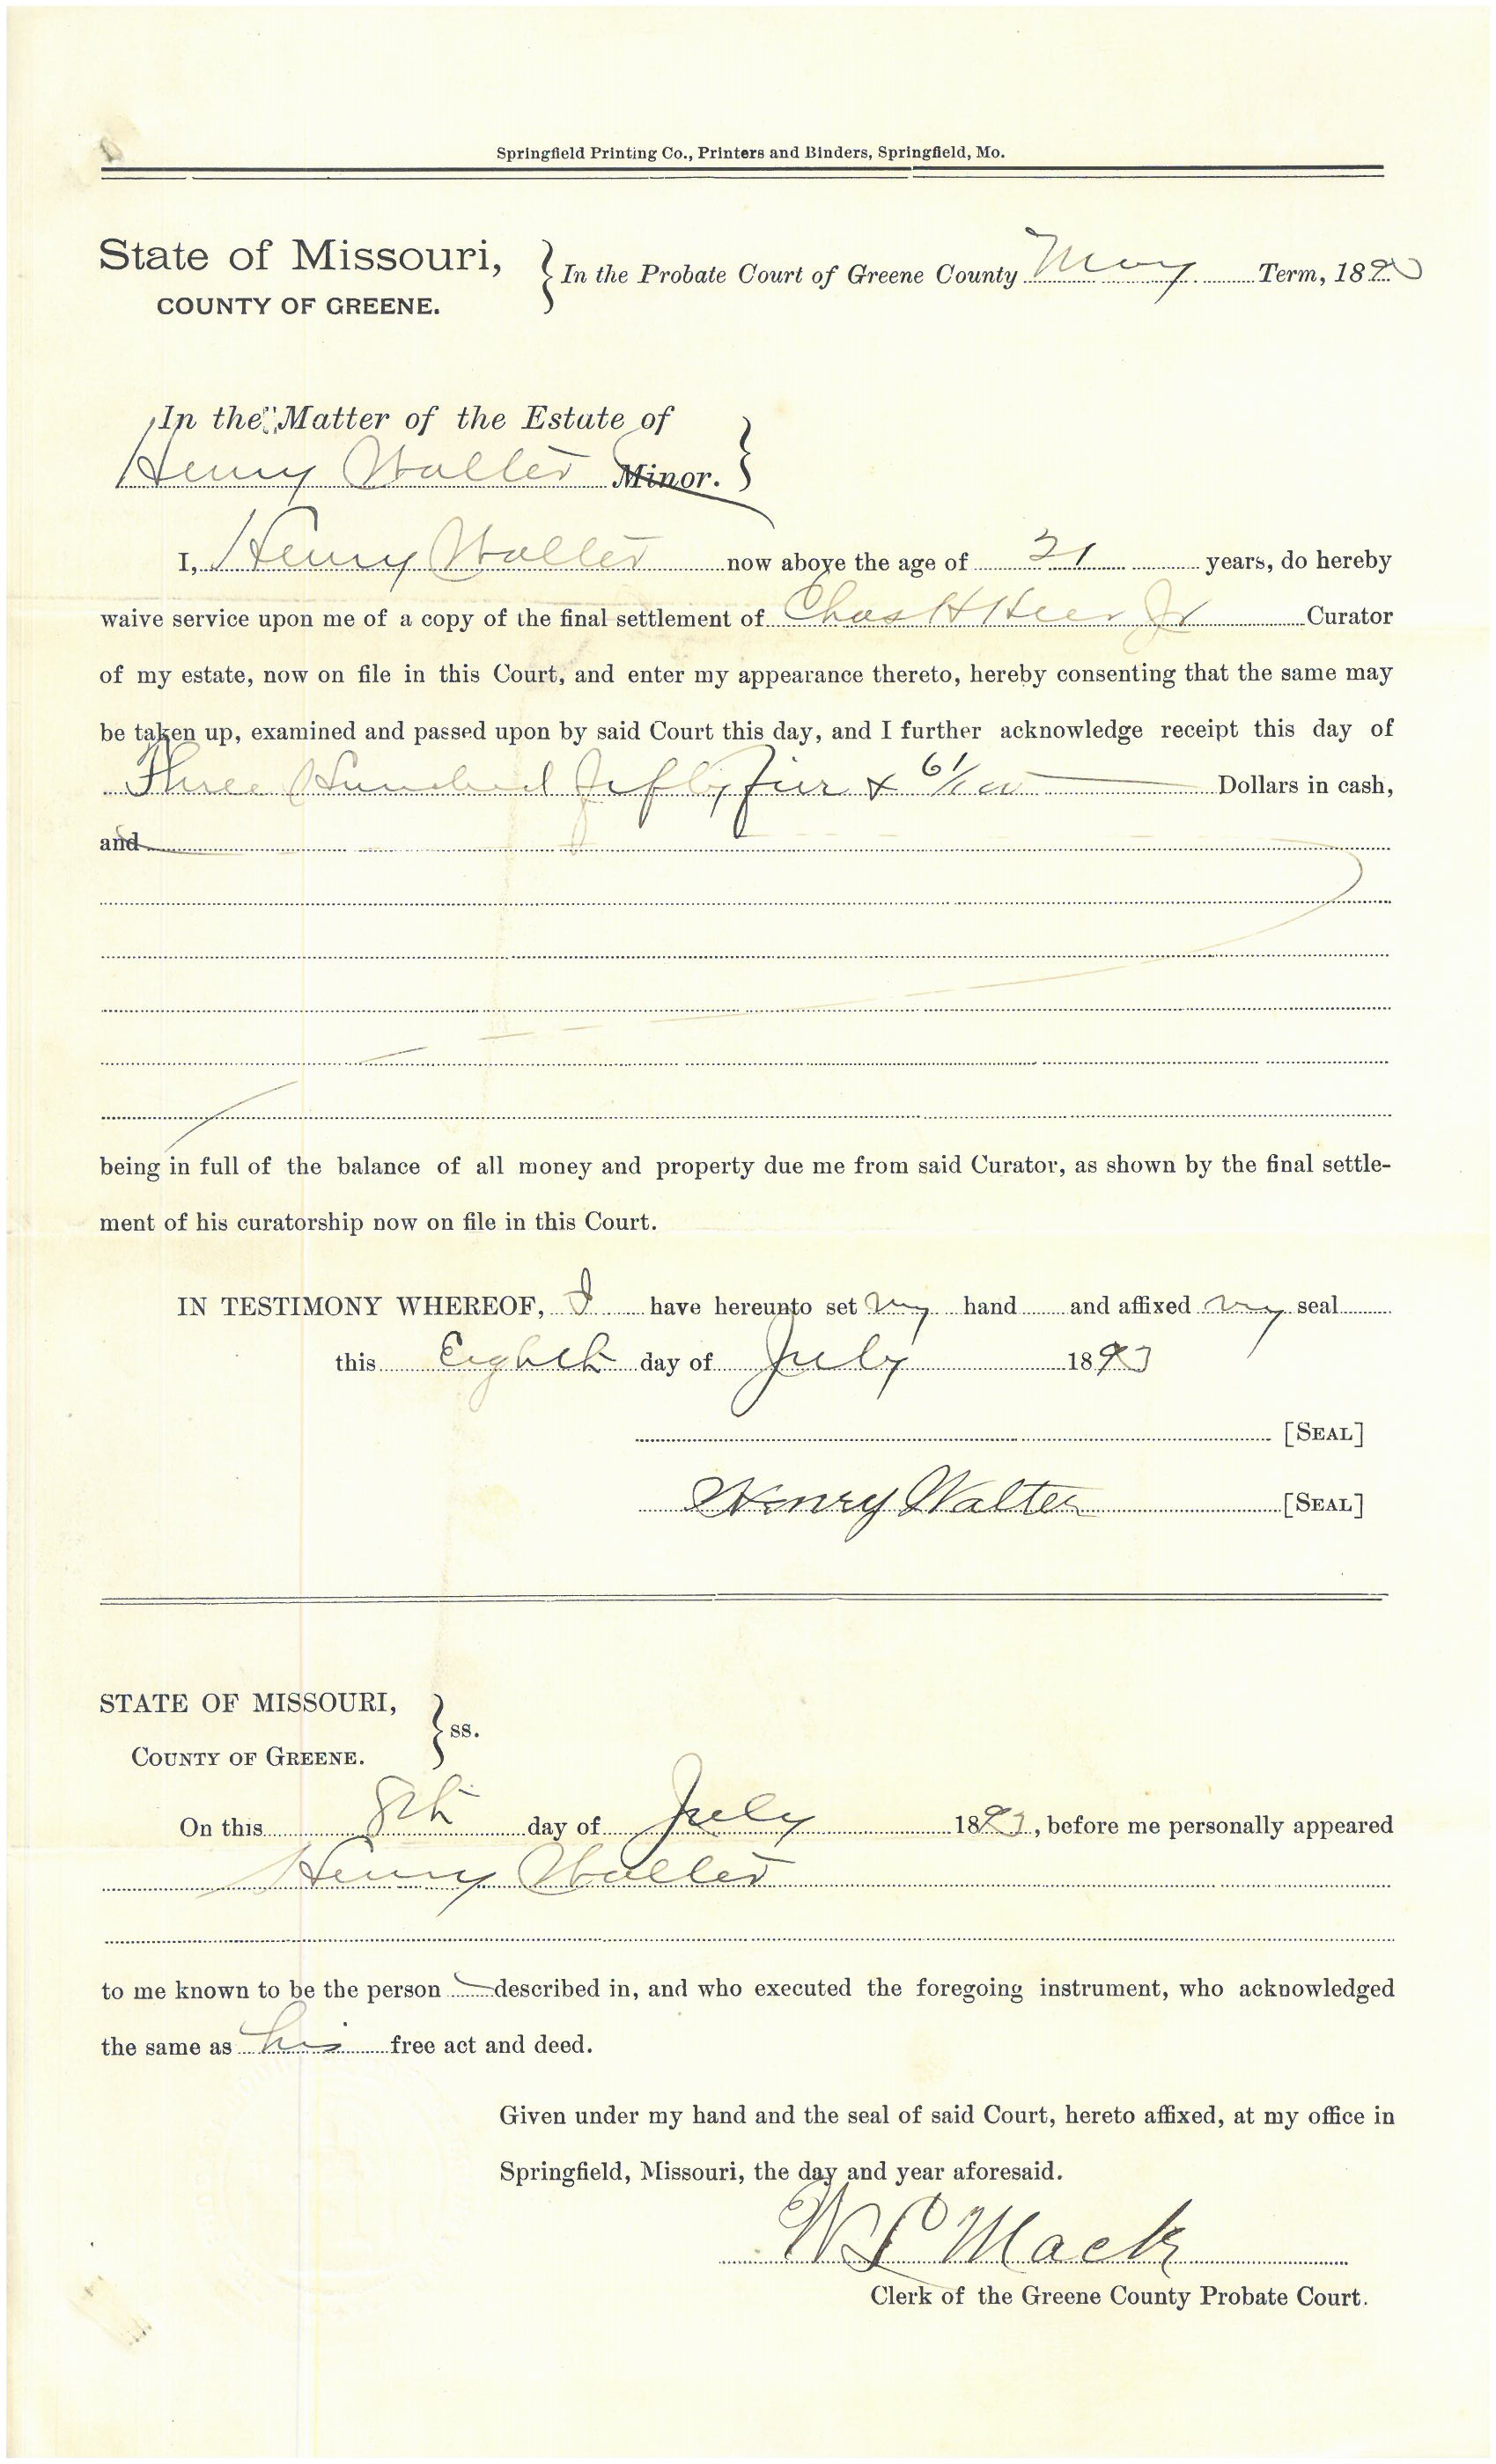 Springfield Printing Co., Printers and Binders, Springfield, Mo.
State of Missouri,
COUNTY OF GREENE.
In the Probate Court of Greene County May Term, 189
In the Matter of the Estate of
Henry Walter Minor.
I, Henry Walter now above the age of 21 years, do hereby
waive service upon me of a copy of the final settlement of Chas H Heer Jr Curator
of my estate, now on file in this Court, and enter my appearance thereto, hereby consenting that the same may
be taken up, examined and passed upon by said Court this day, and I further acknowledge receipt this day of
Three Hundred fifty five & 61/100 Dollars in cash,
and
being in full of the balance of all money and property due me from said Curator, as shown by the final settle-
ment of his curatorship now on file in this Court.
IN TESTIMONY WHEREOF, I have hereunto set my hand and affixed my seal
this Eighth day of July 1893
[SEAL]
Henry Walter [SEAL]
STATE OF MISSOURI,
COUNTY OF GREENE.
ss.
On this 8th day of July 1893, before me personally appeared
Henry Walter
to me known to be the person described in, and who executed the foregoing instrument, who acknowledged
the same as his free act and deed.
Given under my hand and the seal of said Court, hereto affixed, at my office in
Springfield, Missouri, the day and year aforesaid.
W L Mack
Clerk of the Greene County Probate Court.